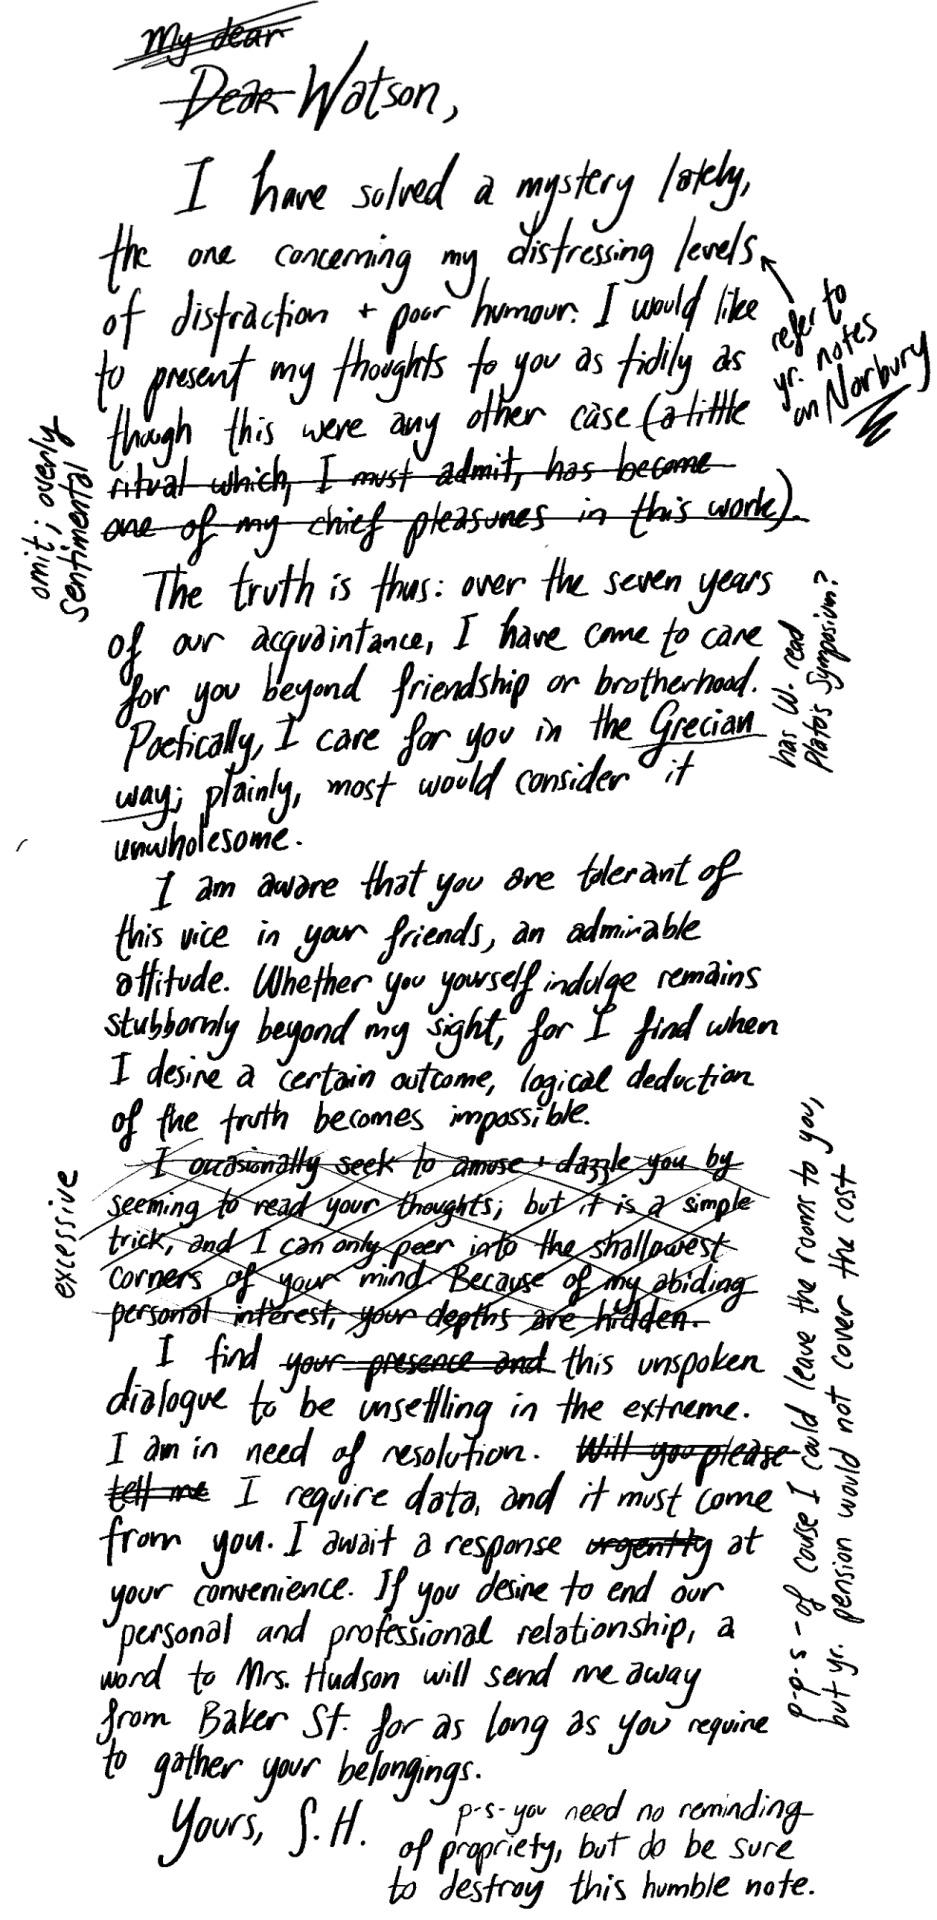 My dear
Dear Watson,
I have solved a mystery lately,
the one concerning my distressing levels
of distraction + poor humour. I would like
to present my thoughts to you as tidily as
though this were any other case (a little
ritual which, I must admit, has become
one of my chief pleasures in this work).
refer to
yr. notes
on Norbury
omit; overly
sentimental
The truth is thus: over the seven years
of our acquaintance, I have come to care
for you beyond friendship or brotherhood.
Poetically, I care for you in the Grecian
way; plainly, most would consider it
unwholesome.
has W. read
Plato's Symposium?
I am aware that you are tolerant of
this vice in your friends, an admirable
attitude. Whether you yourself indulge remains
stubbornly beyond my sight, for I find when
I desire a certain outcome, logical deduction
of the truth becomes impossible.
I occasionally seek to amuse + dazzle you by
seeming to read your thoughts; but it is a simple
trick, and I can only peer into the shallowest
corners of your mind. Because of my abiding
personal interest, your depths are hidden.
excessive
I find your presence and this unspoken
dialogue to be unsettling in the extreme.
I am in need of resolution. Will you please
tell me I require data, and it must come
from you. I await a response urgently at
your convenience. If you desire to end our
personal and professional relationship, a
word to Mrs. Hudson will send me away
from Baker St. for as long as you require
to gather your belongings.
Yours, S.H.
p-s- you need no reminding
of propriety, but do be sure
to destroy this humble note.
p-p-s - of cause I could leave the rooms to you,
but yr. pension would not cover the cost